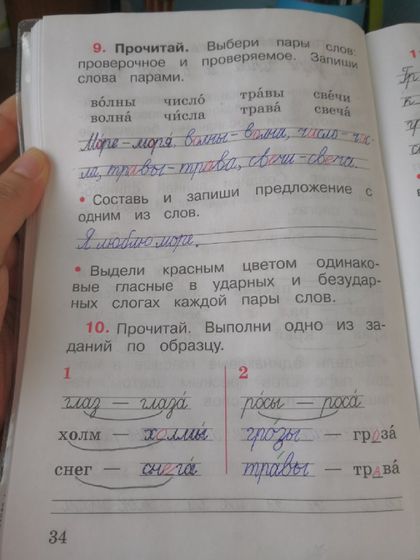 9. Прочитай. Выбери пары слов:
проверочное и проверяемое. Запиши
слова парами.
во́лны число́ тра́вы све́чи
волна́ чи́сла трава́ свеча́
Мо́ре – моря́. волны – волна, число – чис
ла, травы – трава, свечи – свеча.
• Составь и запиши предложение с
одним из слов.
Я люблю море.
• Выдели красным цветом одинако-
вые гласные в ударных и безудар-
ных слогах каждой пары слов.
10. Прочитай. Выполни одно из за-
даний по образцу.
1 2
глаз — глаза́ ро́сы — роса́
холм — холмы́ гро́зы — гроза́
снег — снега́ тра́вы — трава́
34